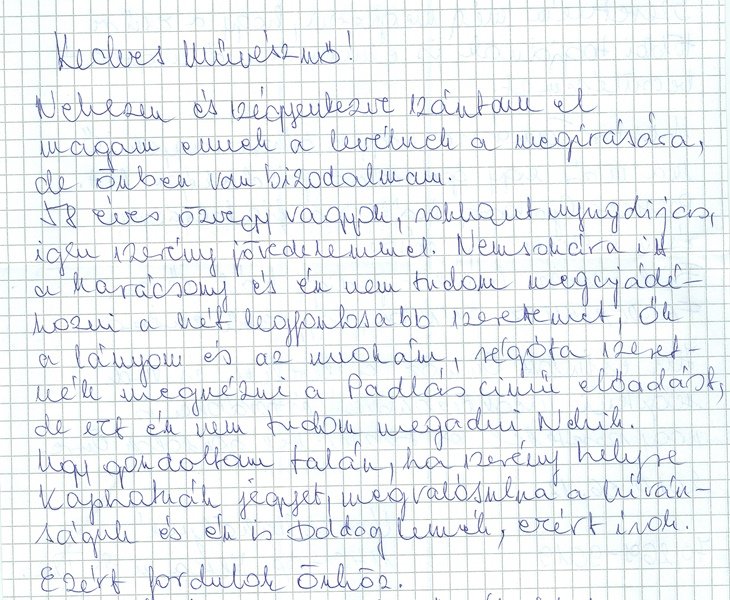 Kedves Művésznő!
Nehezen és szégyenkezve szántam el
magam ennek a levélnek a megírására,
de Önben van bizodalmam.
58 éves özvegy vagyok, rokkant nyugdíjas,
igen szerény jövedelemmel. Nemsokára itt
a karácsony és én nem tudom megajándé-
kozni a két legfontosabb szerettemet, ők
a lányom és az unokám, régóta szeret-
nék megnézni a Padlás című előadást,
de ezt én nem tudom megadni Nekik.
Úgy gondoltam talán, ha szerény helyre
kaphatnák jegyet, megvalósulna a kíván-
ságuk és én is boldog lennék, ezért írok.
Ezért fordulok Önhöz.